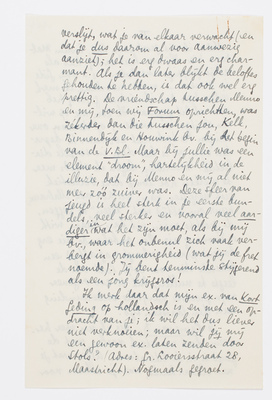 verslijt, wat je van elkaar verwacht (en
dat je dus daarom al voor aanwezig
aanziet); het is erg dwaas en erg char-
mant. Als je dan later blijkt de beloftes
gehouden te hebben, is dat ook wel erg
prettig. De vriendschap tusschen Menno
en mij, toen wij Forum oprichtten, was
zekerder dan die tusschen jou, Kelk,
Binnendijk en Houwink bv. bij het begin
van de V.Bl. Maar bij jullie was er een
element "droom", hartelijkheid in de
illuzie, dat bij Menno en mij al niet
meer zóó zuiver was. Deze sfeer van
jeugd is heel sterk in je eerste bun-
dels, veel sterker en vooral veel aar-
diger dan het zijn moet, als bij mij
bv., waar het onbenul zich vaak ver-
bergt in grommerigheid (wat jij de fret
noemde). Jij bent tenminste
als een jong krijgsros!
Ik merk daar dat mijn ex. van Kort
Geding op hollandsch is en met een op-
dracht van je; ik wil het dus liever
niet verknoeien; maar wil jij mij
een gewoon ex. laten zenden door
Stols? (Adres: Gr. Looiersstraat 28,
Maastricht). Nogmaals gegroet.